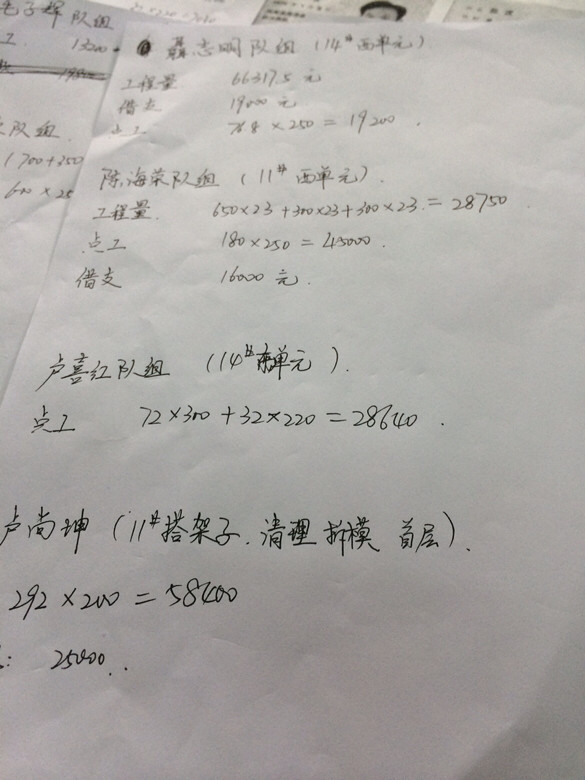 子辉队组
工 1300
1700+350
队组
600×25
聂志明队组 (14# 西单元)
工程量 66317.5 元
借支 19000 元
点工 76.8×250=19200.
陈海荣队组 (11# 西单元).
工程量. 650×23+300×23+300×23=28750
点工 180×250=45000.
借支 16000 元.
卢喜红队组 (14# 东单元).
点工 72×300+32×220=28640.
卢尚坤 (11#搭架子.清理 拆模 首层).
292×200=58400
: 25000..